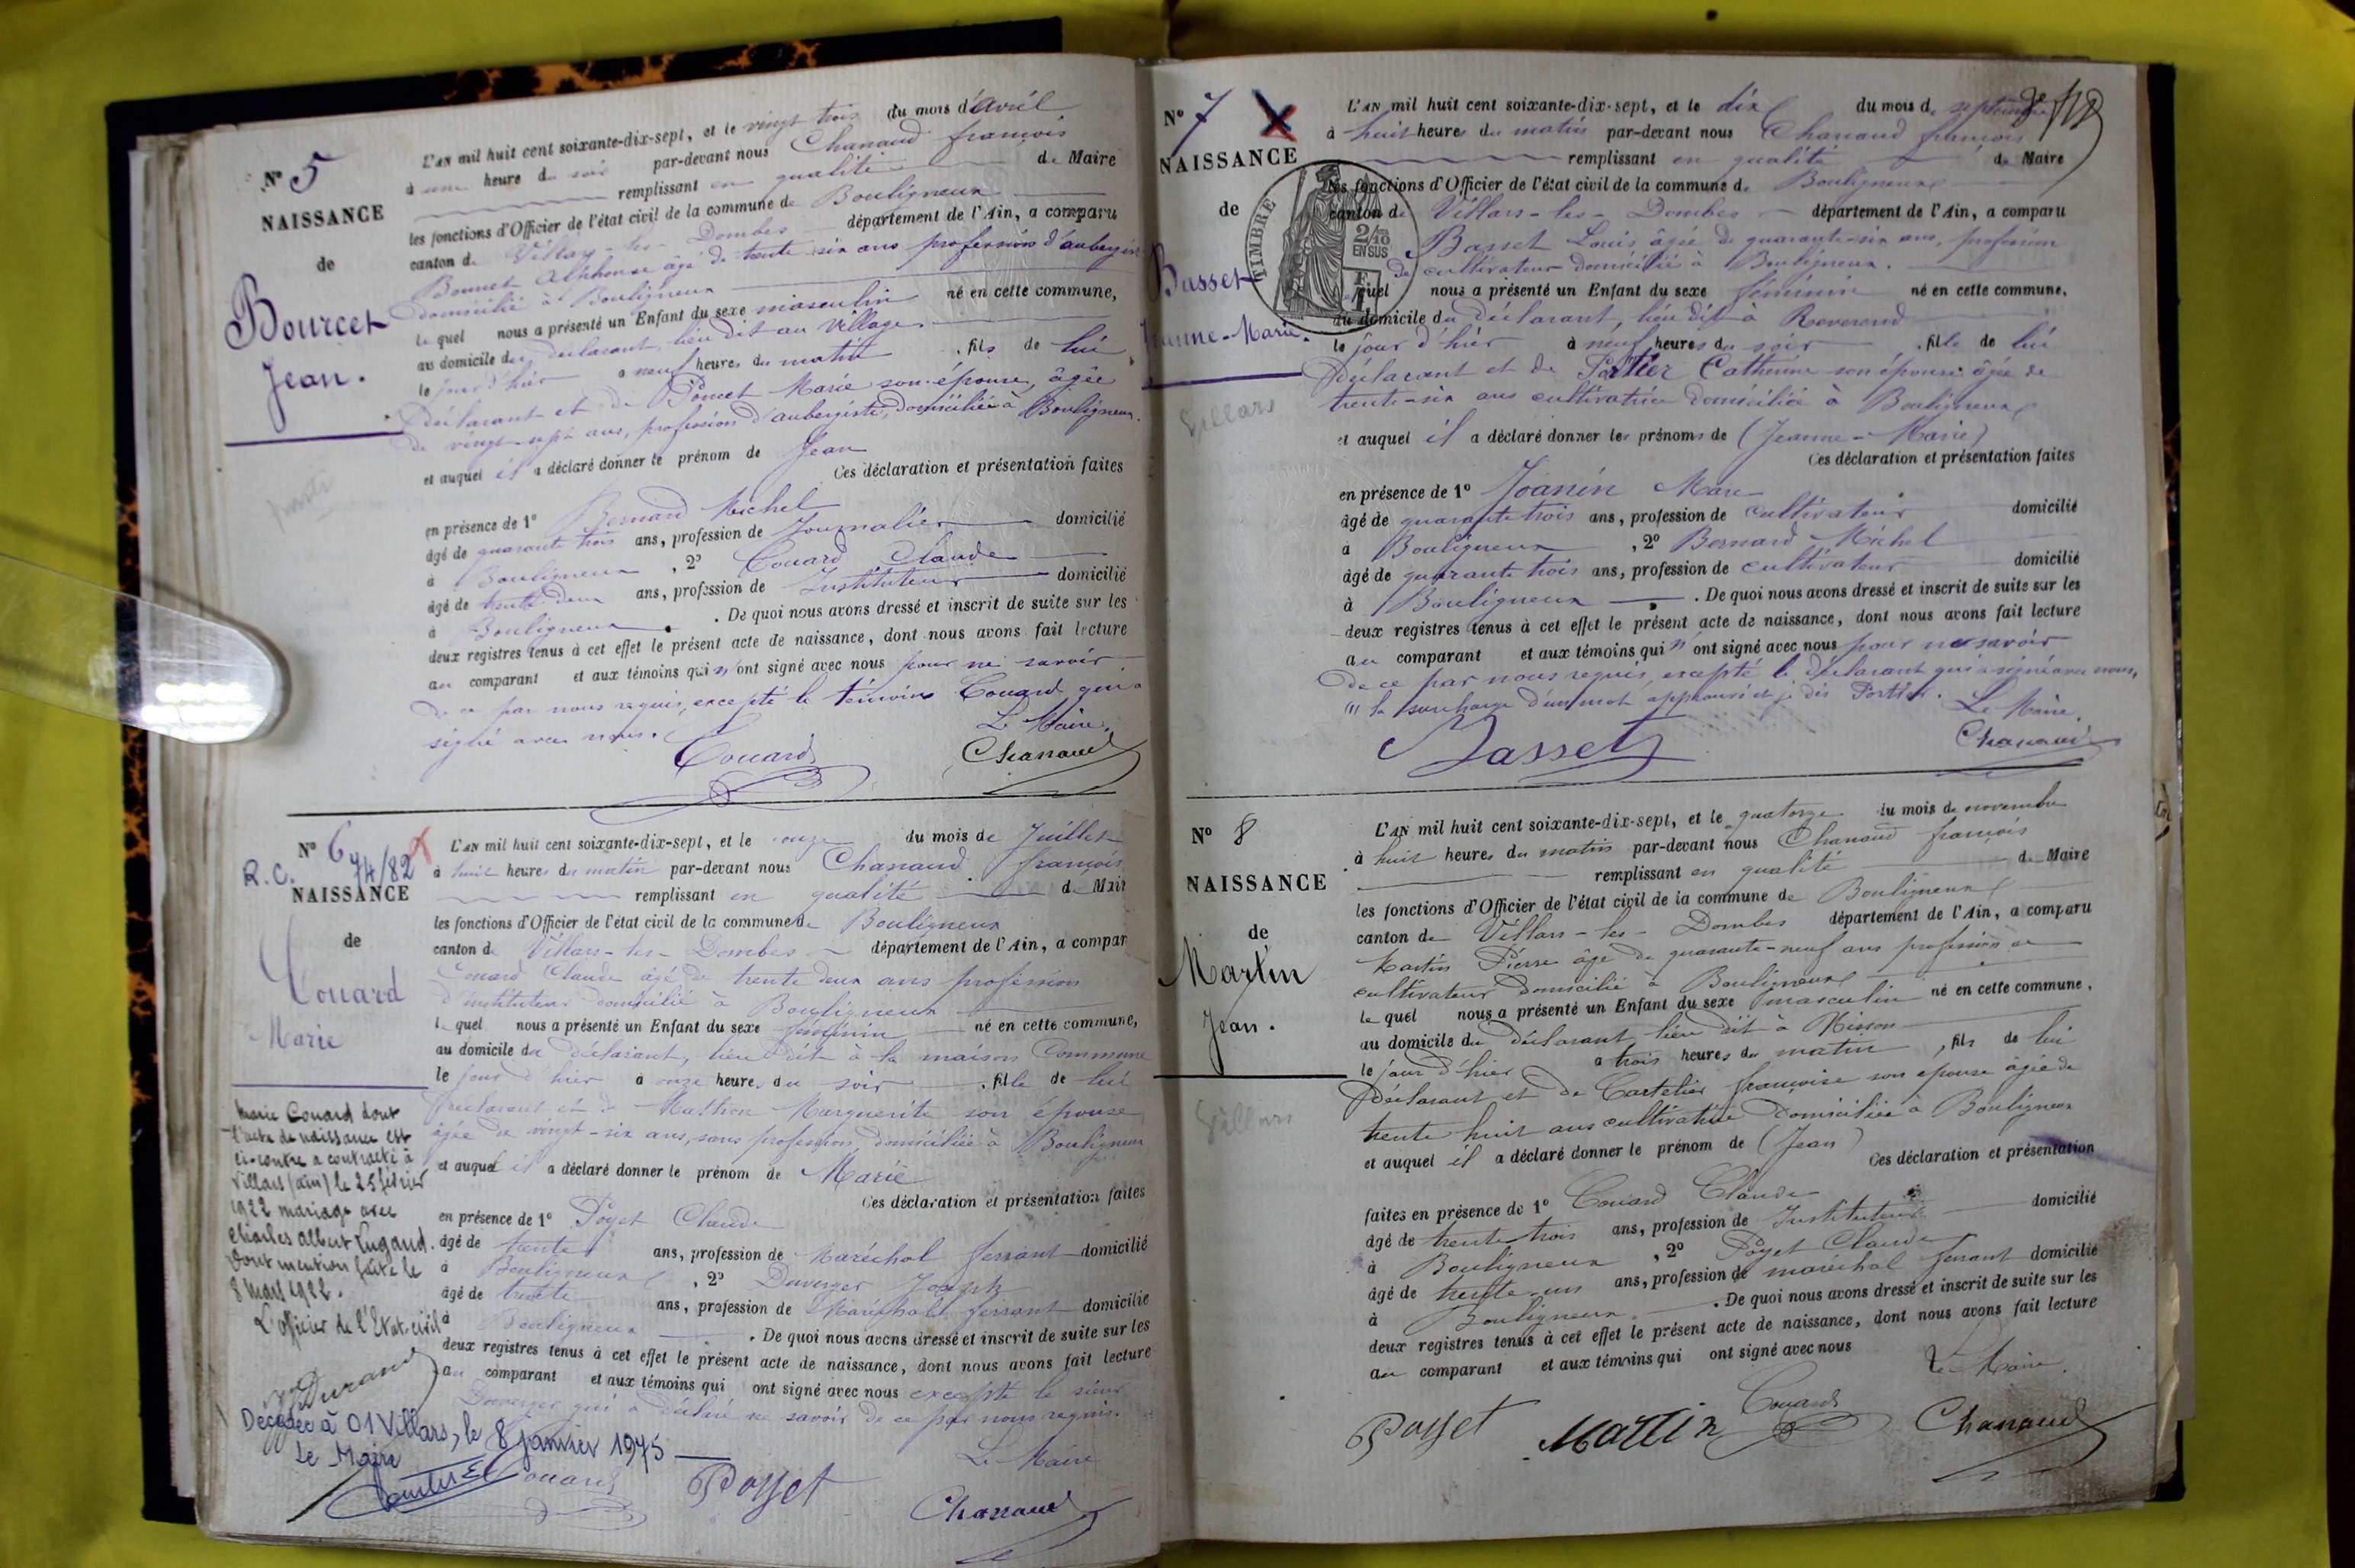 N° 5
NAISSANCE
de
Bourcet
Jean.
L'AN mil huit cent soixante-dix-sept, et le vingt trois du mois d'avril
à une heure du soir par-devant nous Chanaud françois
remplissant en qualité de Maire
les fonctions d'Officier de l'état civil de la commune de Bouligneux
canton de Villars-les-Dombes département de l'Ain, a comparu
Alphonse âgé de trente-six ans profession d'aubergiste
domicilié à Bouligneux
le quel nous a présenté un Enfant du sexe masculin né en cette commune,
au domicile du déclarant, lieu dit au village
le jour d'hier à neuf heures du matin , fils de lui
déclarant et de Poncet Marie son épouse, âgée
de vingt-sept ans, profession d'aubergiste, domiciliée à Bouligneux.
et auquel il a déclaré donner le prénom de Jean
Ces déclaration et présentation faites
en présence de 1° Bernard Michel
âgé de quarante trois ans, profession de Journalier domicilié
à Bouligneux , 2° Couard Claude
âgé de trente-deux ans, profession de Instituteur domicilié
à Bouligneux . De quoi nous avons dressé et inscrit de suite sur les
deux registres tenus à cet effet le présent acte de naissance, dont nous avons fait lecture
au comparant et aux témoins qui n'ont signé avec nous pour ne savoir
de ce par nous requis, excepté le témoins Couard qui a
signé avec nous.
Le Maire.
Couard
Chanaud
N° 6
R.C. 74/82
NAISSANCE
de
Couard
Marie
L'AN mil huit cent soixante-dix-sept, et le onze du mois de Juillet
à huit heures du matin par-devant nous Chanaud françois
remplissant en qualité de Mair
les fonctions d'Officier de l'état civil de la commune de Bouligneux
canton de Villars-les-Dombes département de l'Ain, a compar
Couard Claude âgé de trente deux ans profession
d'instituteur domicilié à Bouligneux
le quel nous a présenté un Enfant du sexe féminin né en cette commune,
au domicile du déclarant, lieu dit à la maison Commune
le jour d'hier à onze heures du soir , fille de lui
déclarant et de Marguerite son épouse
âgée de vingt-six ans, sans profession, domiciliée à Bouligneux
et auquel il a déclaré donner le prénom de Marie
Ces déclaration et présentation faites
en présence de 1° Poyet Claude
âgé de trente ans, profession de Maréchal ferrant domicilié
à Bouligneux , 2° Duverger Joseph
âgé de trente ans, profession de Maréchal ferrant domicilié
à Bouligneux . De quoi nous avons dressé et inscrit de suite sur les
deux registres tenus à cet effet le présent acte de naissance, dont nous avons fait lecture
au comparant et aux témoins qui ont signé avec nous excepté le sieur
Duverger qui a déclaré ne savoir de ce par nous requis.
Le Maire
Couard
Poyet
Chanaud
Marie Couard dont
l'acte de naissance est
ci-contre a contracté à
Villars (ain) le 25 février
1922 mariage avec
Charles Albert Lugand.
Dont mention faite le
8 mars 1922.
L'officier de l'Etat-civil
Durand
Décédée à 01 Villars, le 8 janvier 1975
Le Maire
N° 7
NAISSANCE
de
Basset
Jeanne-Marie.
Villars
TIMBRE
2/10
EN SUS
L'AN mil huit cent soixante-dix-sept, et le dix du mois de septembre
à huit heures du matin par-devant nous Chanaud françois
remplissant en qualité de Maire
les fonctions d'Officier de l'état civil de la commune de Bouligneux
canton de Villars-les-Dombes département de l'Ain, a comparu
Basset Louis âgé de quarante-six ans, profession
de cultivateur domicilié à Bouligneux.
lequel nous a présenté un Enfant du sexe féminin né en cette commune,
au domicile du déclarant, lieu dit à Reverend
le jour d'hier à neuf heures du soir , fille de lui
déclarant et de Portier Catherine son épouse âgée de
trente-six ans cultivatrice domiciliée à Bouligneux
et auquel il a déclaré donner les prénoms de (Jeanne-Marie)
Ces déclaration et présentation faites
en présence de 1° Joanin Marc
âgé de quarante trois ans, profession de cultivateur domicilié
à Bouligneux , 2° Bernard Michel
âgé de quarante trois ans, profession de cultivateur domicilié
à Bouligneux . De quoi nous avons dressé et inscrit de suite sur les
deux registres tenus à cet effet le présent acte de naissance, dont nous avons fait lecture
au comparant et aux témoins qui n'ont signé avec nous pour ne savoir
de ce par nous requis, excepté le déclarant qui a signé avec nous,
la surcharge d'un mot approuvé et je dis Portier.
Le Maire.
Basset
Chanaud
N° 8
NAISSANCE
de
Martin
Jean.
Villars
L'AN mil huit cent soixante-dix-sept, et le quatorze du mois de novembre
à huit heures du matin par-devant nous Chanaud françois
remplissant en qualité de Maire
les fonctions d'Officier de l'état civil de la commune de Bouligneux
canton de Villars-les-Dombes département de l'Ain, a comparu
Martin Pierre âgé de quarante-neuf ans profession de
cultivateur domicilié à Bouligneux
le quel nous a présenté un Enfant du sexe masculin né en cette commune,
au domicile du déclarant lieu dit à
le jour d'hier à trois heures du matin , fils de lui
déclarant et de Cartelier françoise son épouse âgée de
trente huit ans cultivatrice domiciliée à Bouligneux
et auquel il a déclaré donner le prénom de (Jean)
Ces déclaration et présentation
faites en présence de 1° Couard Claude
âgé de trente trois ans, profession de Instituteur domicilié
à Bouligneux , 2° Poyet Claude
âgé de trente-un ans, profession de maréchal ferrant domicilié
à Bouligneux . De quoi nous avons dressé et inscrit de suite sur les
deux registres tenus à cet effet le présent acte de naissance, dont nous avons fait lecture
au comparant et aux témoins qui ont signé avec nous
Le Maire.
Couard
Poyet
Martin
Chanaud